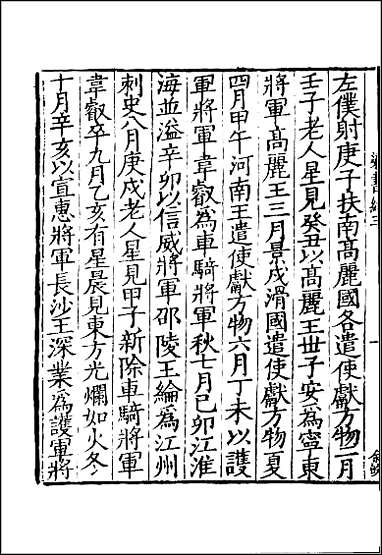 左僕射庚子扶南髙麗國各遣使獻方物二月
壬子老人星見癸丑以髙麗王丗子安為寧東
將軍髙麗王三月景戌滑國遣使獻方物夏
四月甲午河南王遣使獻方物六月丁未以護
軍將軍韋叡為車騎將軍秋七月己卯江淮
海並溢辛卯以信威將軍邵陵王綸為江州
刺史八月庚戌老人星見甲子新除車騎將軍
韋叡卒九月乙亥有星晨見東方光爛如火冬
十月辛亥以宣惠將軍長沙王深業為護軍將